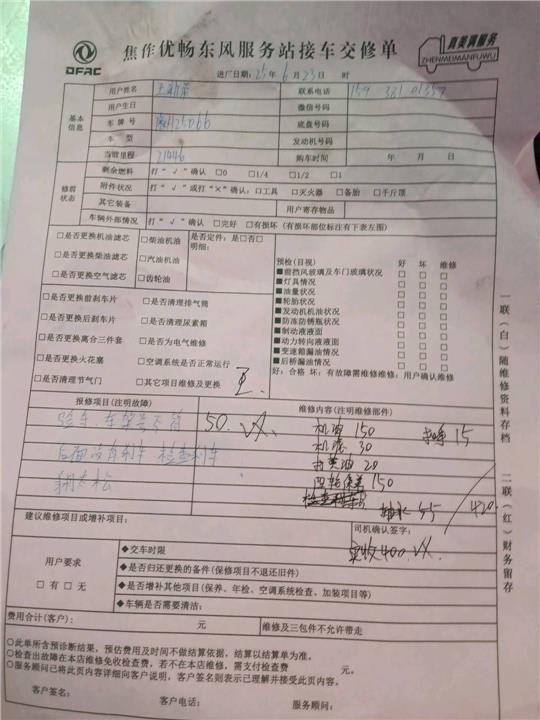 DFAC
焦作优畅东风服务站接车交修单
真美满服务
ZHENMEIMANFUWU
进厂日期：25年6月23日 时
基本信息
用户姓名 联系电话 159
用户生日 微信号码
车牌号 底盘号码
车型 发动机号码
当前里程 21446 购车时间 年 月 日
修前状态
剩余燃料 打“√”确认 □0 □1/4 □1/2 □1
附件状况 打“√”或打“×”确认：□工具 □灭火器 □备胎 □千斤顶
其它装备 用户寄存物品
车辆外部情况 打“√”确认 □完好 □有损坏（有损坏部位标注有下表左图）
□是否更换机油滤芯 □柴油机油 是否定件：是□否□
□是否更换柴油滤芯 □汽油机油 明细：
□是否更换空气滤芯 □齿轮油
□是否更换前刹车片 □是否清理排气筒
□是否更换后刹车片 □是否清理尿素箱
□是否更换离合三件套 □是否为电气维修
□是否更换火花塞 □空调系统是否正常运行
□是否清理节气门 □其它项目维修及更换
预检（目视） 好 坏 维修
■前挡风玻璃及车门玻璃状况 □ □ □
■灯具情况 □ □ □
■油量状况 □ □ □
■轮胎状况 □ □ □
■发动机机油状况 □ □ □
■防冻防锈瓶状况 □ □ □
■制动液液面 □ □ □
■动力转向液液面 □ □ □
■变速箱漏油情况 □ □ □
■后桥漏油情况 □ □ □
好：合格 坏：有故障需维修维修：用户确认维修
报修项目（注明故障） 维修内容（注明维修部件）
50. 机油 150
15
机滤 30
后面没有刹车 检查刹车
打黄油 20
四轮保养 150
55
420
建议维修项目或增补项目：
司机确认签字：
实收400.
用户要求
□有 □无
◆交车时限
◆是否归还更换的备件（保修项目不退还旧件）
◆是否增补其他项目（保养、年检、空调系统检查、加装项目等）
◆车辆是否需要清洁：
费用合计（客户）： 元 维修及三包件不允许带走
○此单所含预诊断结果，预估费用及时间不做结算依据，结算以结算单为准。
○检查出故障在本店维修免收检查费，若不在本店维修，需支付检查费 元。
○服务顾问已将此页内容详细向客户说明，客户签名则表示已理解并接受此页内容。
客户签名： 客户电话： 服务顾问：
一联（白）随维修资料存档
二联（红）财务留存